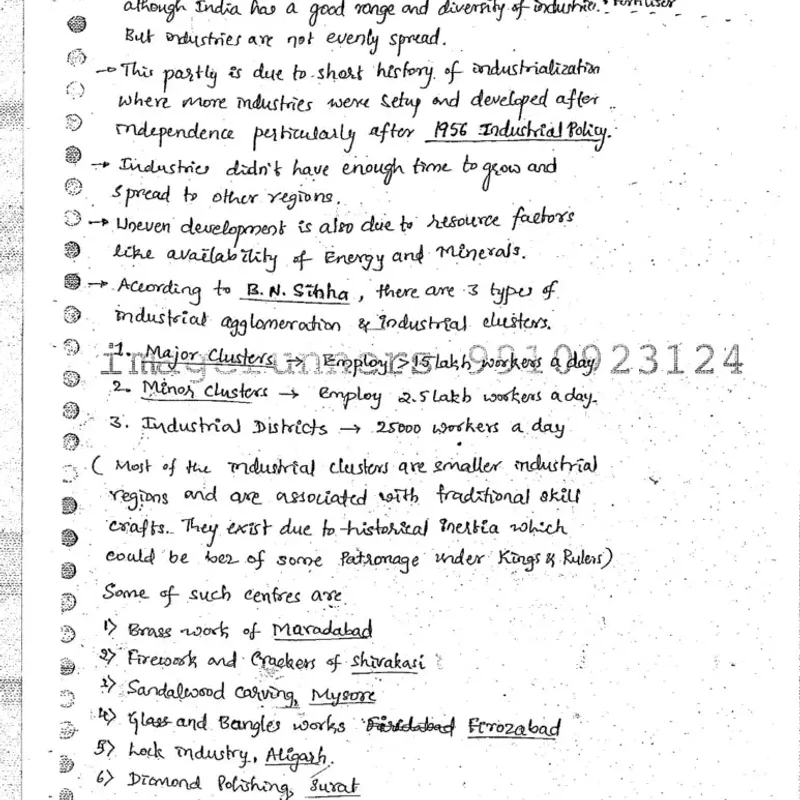 although India has a good range and diversity of industries. Fertiliser
But industries are not evenly spread.
→ This partly is due to short history of industrialization
where more industries were setup and developed after
independence perticularly after 1956 Industrial Policy.
→ Industries didn't have enough time to grow and
spread to other regions.
→ Uneven development is also due to resource factors
like availability of Energy and Minerals.
→ According to B.N. Sinha, there are 3 types of
industrial agglomeration & industrial clusters.
1. Major Clusters → Employ >15 lakh workers a day
imagerunners 9910923124
2. Minor Clusters → employ 2.5 lakh workers a day.
3. Industrial Districts → 25000 workers a day
( Most of the industrial clusters are smaller industrial
regions and are associated with traditional skill
crafts. They exist due to historical inertia which
could be bez of some Patronage under Kings & Rulers)
Some of such centres are
1) Brass work of Maradabad
2) Firework and Crackers of Shivakasi
3) Sandalwood carving, Mysore
4) Glass and Bangles works Firozabad
5) Lock industry, Aligarh.
6) Diamond Polishing, Surat